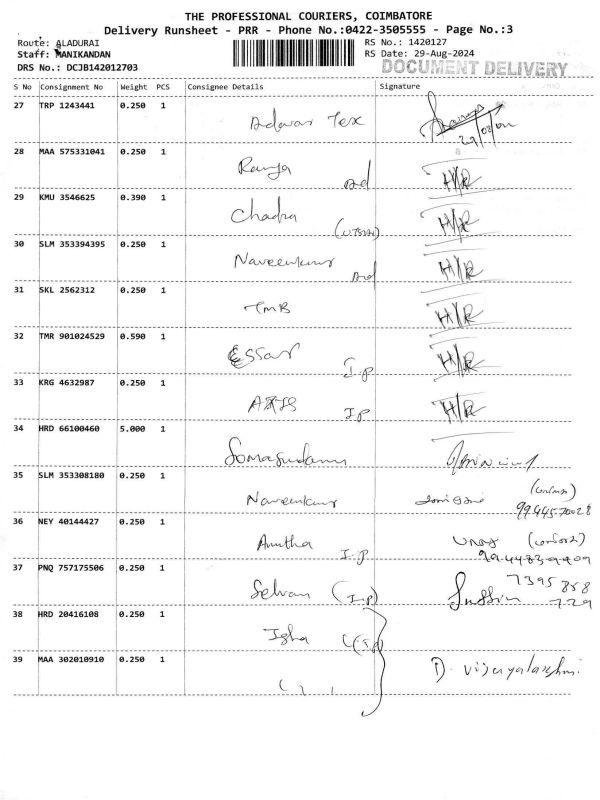 THE PROFESSIONAL COURIERS, COIMBATORE
Delivery Runsheet - PRR - Phone No.:0422-3505555 - Page No.:3
Route: ALADURAI
RS No.: 1420127
Staff: MANIKANDAN
RS Date: 29-Aug-2024
DRS No.: DCJB142012703
DOCUMENT DELIVERY
S No Consignment No Weight PCS Consignee Details Signature
27 TRP 1243441 0.250 1
Tex
28 MAA 575331041 0.250 1
Ramya
H/R
29 KMU 3546625 0.390 1
Chadra
H/R
30 SLM 353394395 0.250 1
Naveenkumar
H/R
31 SKL 2562312 0.250 1
TMB
H/R
32 TMR 901024529 0.590 1
Essar I.P
H/R
33 KRG 4632987 0.250 1
I.P
H/R
34 HRD 66100460 5.000 1
Somasundaram
35 SLM 353308180 0.250 1
Naveenkumar
9944570028
36 NEY 40144427 0.250 1
Amutha I.P
37 PNQ 757175506 0.250 1
Selvam (I.P)
7395858
729
38 HRD 20416108 0.250 1
Isha
39 MAA 302010910 0.250 1
D. Vijayalakshmi